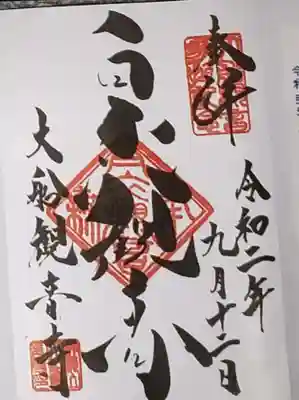 奉拝
令和二年
九月十二日
白衣観音
大船観音寺